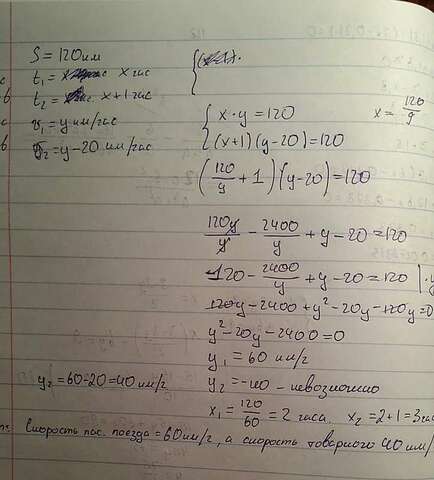 S = 120 км
t₁ = x час
t₂ = x+1 час
v₁ = y км/час
v₂ = y-20 км/час
{ x · y = 120
(x+1)(y-20) = 120
x = 120/y
(120/y + 1)(y-20) = 120
120y/y - 2400/y + y - 20 = 120
120 - 2400/y + y - 20 = 120 | · y
120y - 2400 + y² - 20y - 120y = 0
y² - 20y - 2400 = 0
y₁ = 60 км/г
y₂ = -40 - невозможно
y₂ = 60-20 = 40 км/г
x₁ = 120/60 = 2 часа. x₂ = 2+1 = 3 час
Скорость пас. поезда = 60 км/г, а скорость товарного 40 км/